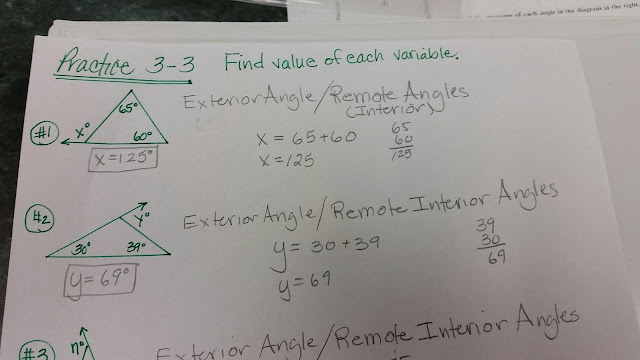 of each angle in the diagram at the right.
Practice 3-3 Find value of each variable.
#1
65°
x°
60°
x=125°
Exterior Angle/Remote Angles
(Interior)
x = 65+60
x=125
65
60
125
#2
y°
30°
39°
y=69°
Exterior Angle/Remote Interior Angles
y= 30+39
y=69
39
30
69
#3
n°
Exterior Angle/Remote Interior Angles